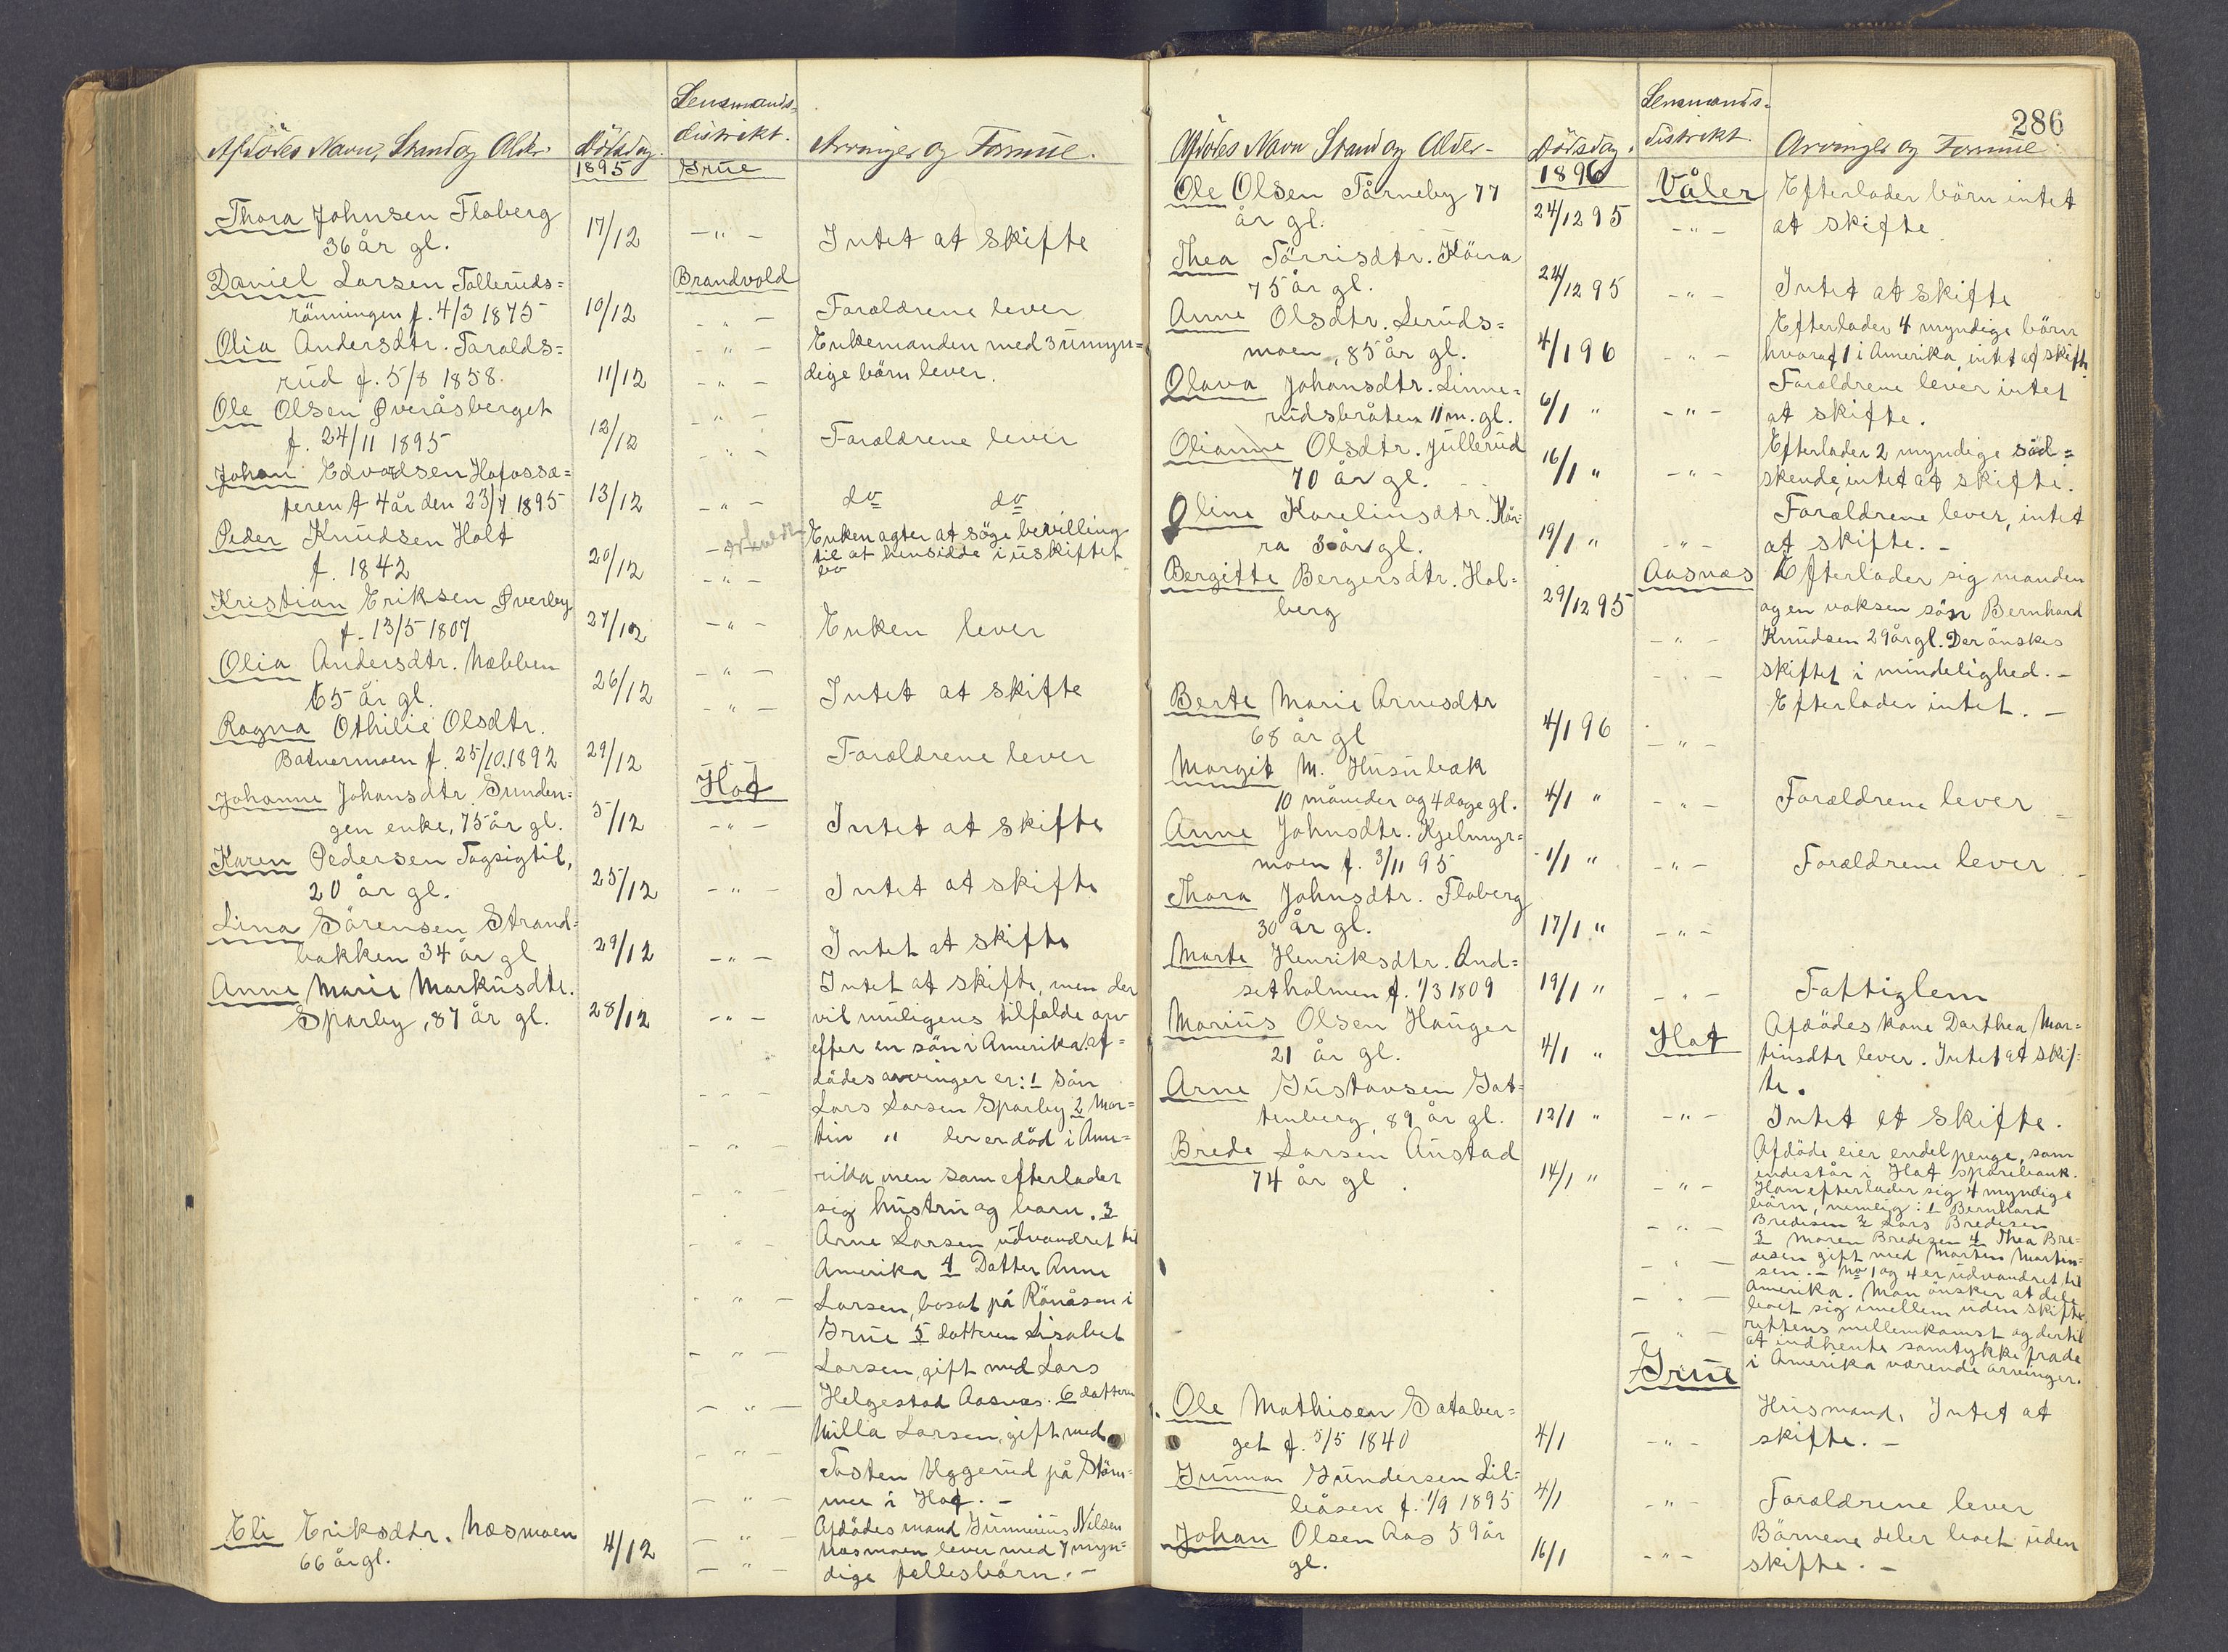 Lensmands-
Afdödes Navn, Stand og Alder. Dödsdag. distrikt. Arvinger og Formue.
1895 Grue
Thora Johnsen Floberg
36 år gl. 17/12 -"- Intet at skifte
Daniel Larsen Tolleruds= Brandvold
rönningen f. 4/3 1875 10/12 -"- Forældrene lever
Olia Andersdtr. Taralds= -"- Enkemanden med 3 umyn=
rud f. 5/8 1858. 11/12 -"- dige börn lever.
Ole Olsen Øveråsberget -"-
f. 24/11 1895 12/12 -"- Forældrene lever
Johan Edvardsen Hofossæ=
teren f 4 år den 23/7 1895 13/12 -"- do do
Peder Knudsen Holt Enken agter at söge bevilling
f. 1842 20/12 -"- til at hensidde i uskiftet
bo
Kristian Eriksen Øverby
f. 13/5 1807 27/12 -"- Enken lever
Olia Andersdtr. Næbben -"-
65 år gl. 26/12 -"- Intet at skifte
Ragna Othilie Olsdtr.
Batnermoen f. 25/10.1892 29/12 -"- Forældrene lever
Johanne Johansdtr. Sunden= Hof
gen enke, 75 år gl. 5/12 -"- Intet at skifte
Karen Pedersen Tagsigtil,
20 år gl. 25/12 -"- Intet at skifte
Lina Sörensen Strand=
bakken 34 år gl 29/12 -"- Intet at skifte
Anne Marie Markusdtr. Intet at skifte, men der
Sparby, 87 år gl. 28/12 -"- vil muligens tilfalde arv
efter en sön i Amerika. Af=
dödes arvinger er: 1 Sön
-"- Lars Larsen Sparby 2 Mar=
-"- tin " der er död i Ame=
-"- rika men som efterlader
sig hustru og barn. 3
-"- Arne Larsen, udvandret til
Amerika 4 Datter Anne
-"- Larsen, bosat på Rönåsen i
Grue 5 datteren Lisabet
-"- Larsen, gift med Lars
-"- Helgestad Aasnæs. 6 datteren
Milla Larsen, gift med
-"- Tosten Uggerud på
-"- i Hof. -
Eli Eriksdtr. Næsmoen -"- Afdödes mand Gunnerius Nilsen
66 år gl. 4/12 Næsmoen lever med 7 myn=
-"- dige fellesbörn. -
286
Lensmands-
Afdödes Navn Stand og Alder- Dödsdag. distrikt. Arvinger og Formue
1896 Våler
Ole Olsen Tårneby 77 Efterlader börn intet
år gl. 24/12 95 -"- at skifte
Thea Törrisdtr. Köira
75 år gl. 24/12 95 -"- Intet at skifte
Anne Olsdtr. Leruds= Efterlader 4 myndige börn
moen, 85 år gl. 4/1 96 -"- hvoraf 1 i Amerika, intet at skifte
Olava Johansdtr. Linne= Forældrene lever intet
rudsbråten 11 m. gl. 6/1 " -"- at skifte.
Olianne Olsdtr. Jullerud Efterlader 2 myndige söd=
70 år gl. 16/1 " -"- skende, intet at skifte.
Oline Karelinsdtr. Kår= Forældrene lever, intet
ra 3 år gl. 19/1 " -"- at skifte. -
Bergitte Bergersdtr. Hol= Aasnæs Efterlader sig manden
berg 29/12 95 og en voksen sön Bernhard
-"- Knudsen 29 år gl. Der önskes
-"- skiftet i mindelighed. -
Berte Marie Arnesdtr Efterlader intet. -
68 år gl 4/1 96 -"-
Margit M. Husubak
10 måneder og 4 dage gl. 4/1 " -"- Forældrene lever
Anne Johnsdtr. Kjelmyr=
moen f. 3/11 95 1/1 " -"- Forældrene lever
Thora Johnsdtr. Floberg
30 år gl. 17/1 " -"-
Marte Henriksdtr. And=
setholmen f. 1/3 1809 19/1 " -"- Fattiglem
Marius Olsen Hauger Hof Afdödes kone Darthea Mar=
21 år gl. 4/1 " tinsdtr lever. Intet at skif=
te.
Arne Gustavsen Gat=
tenberg, 89 år gl. 12/1 " -"- Intet at skifte.
Brede Larsen Austad Afdöde eier endel penge, som
74 år gl. 14/1 " -"- indestår i Hof sparebank.
Han efterlader sig 4 myndige
börn, nemlig: 1 Bernhard
-"- Bredesen 2 Lars Bredesen
3 Maren Bredesen 4 Thea Bre=
desen gift med Marten Martin=
-"- sen. - No 1 og 4 er udvandret til
-"- Amerika. Man önsker at dele
boet sig imellem uden skifte
-"- rettens mellemkomst og dertil
at indhente samtykke fra de
Grue i Amerika værende arvinger.
Ole Mathisen Sataber= Husmand, Intet at
get f. 5/5 1840 4/1 -"- skifte. -
Gunnar Gundersen Lil=
leåsen f. 1/9 1895 4/1 -"- Forældrene lever
Johan Olsen Aas 59 år Börnene deler boet uden
gl. 16/1 -"- skifte. -